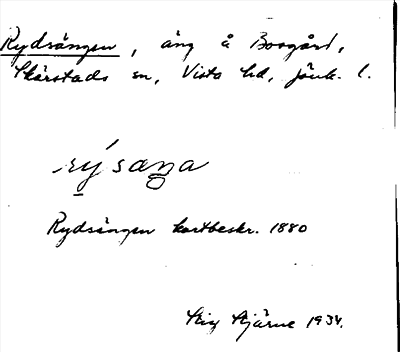 Rydsängen, äng å Boogård,
Skärstads sn, Vista hd, Jönk. l.
rýsaŋa
Rydsängen kartbeskr. 1880
Stig Stjärne 1934.